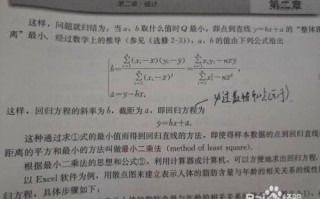 第二章 统计
第二章
这样，问题就归结为：当a，b取什么值时Q最小，即点到直线y=bx+a的“整体距
离”最小．经过数学上的推导（参见《选修2-3》），a，b的值由下列公式给出
b=∑(xᵢ-x̄)(yᵢ-ȳ)/∑(xᵢ-x̄)²=∑xᵢyᵢ-nx̄ȳ/∑xᵢ²-nx̄²
a=ȳ-bx̄.
这样，回归方程的斜率为b，截距为a，即回归方程为
y=bx+a.
这种通过求①式的最小值而得到回归直线的方法，即使得样本数据的点到回归直线
距离的平方和最小的方法叫做最小二乘法（method of least square）.
根据最小二乘法的思想和公式①，利用计算器或计算机，可以方便地求出回归方程.
以Excel软件为例，用散点图来建立表示人体的脂肪含量与年龄的相关关系的线性
归方程，具体步骤如下：